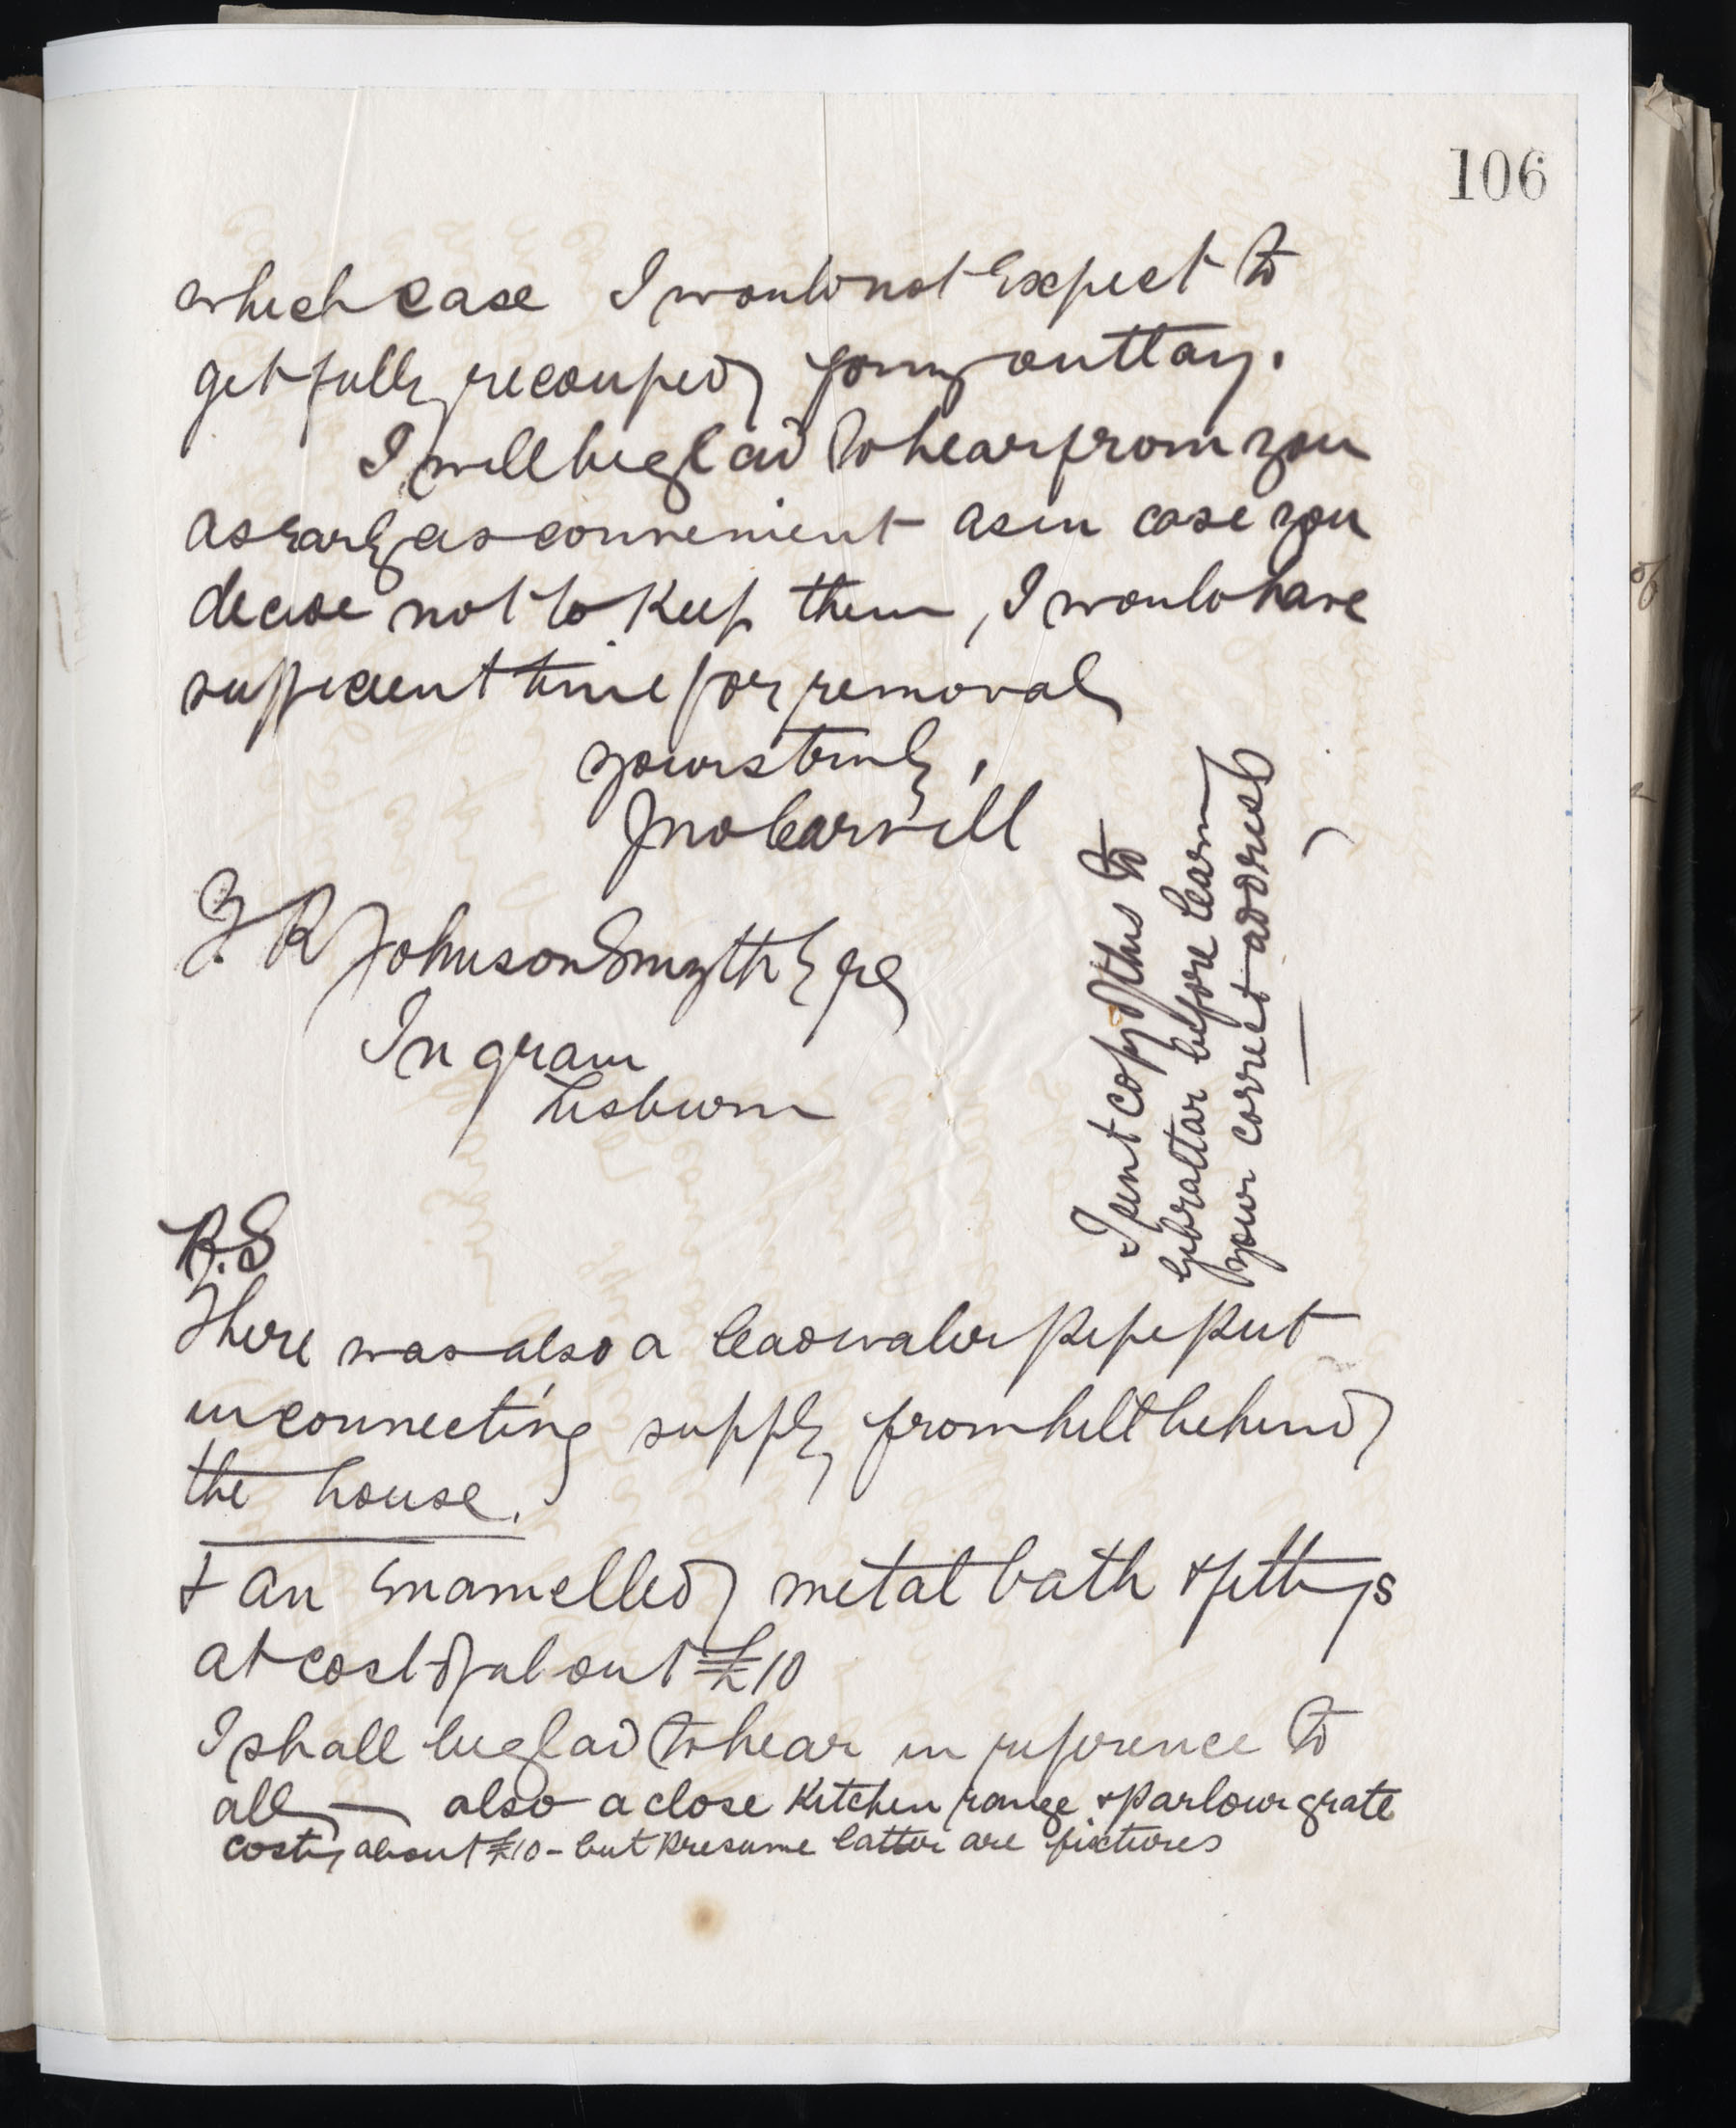 106
which case I would not Expect to
get fully recouped for my outlay.
I will be glad to hear from you
as early as convenient as in case you
decide not to Keep them, I would have
sufficient time for removal
yours truly,
Jno Carvill
F. R Johnson Smyth Esqre
Ingram
Lisburn
I sent copy of this to
Gibraltar before learning
your correct address
P.S
There was also a lead water pipe put
in connecting supply from hill behind
the house.
& an Enamelled metal bath & fittings
at cost of about £10
I shall be glad to hear in reference to
all — also a close Kitchen range & parlour grate
costing about £10 - but presume latter are fixtures